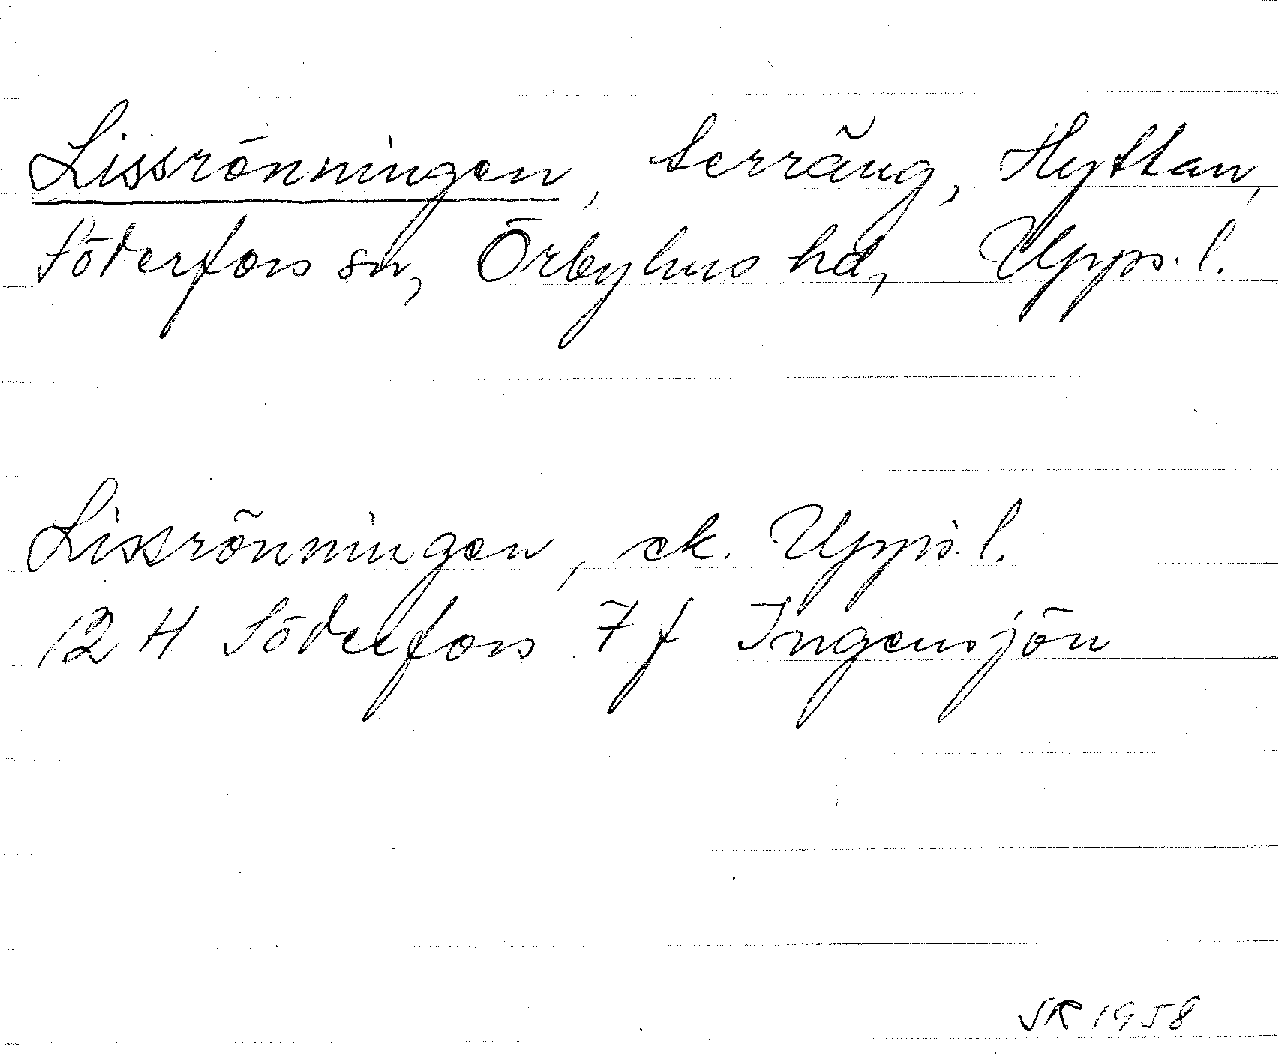 Lissrönningen, terräng, Hyttan,
Söderfors sn, Örbyhus hd, Upps. l.
Lissrönningen, ek. Upps. l.
12 H Söderfors 7 f Ingensjön
SR 1958